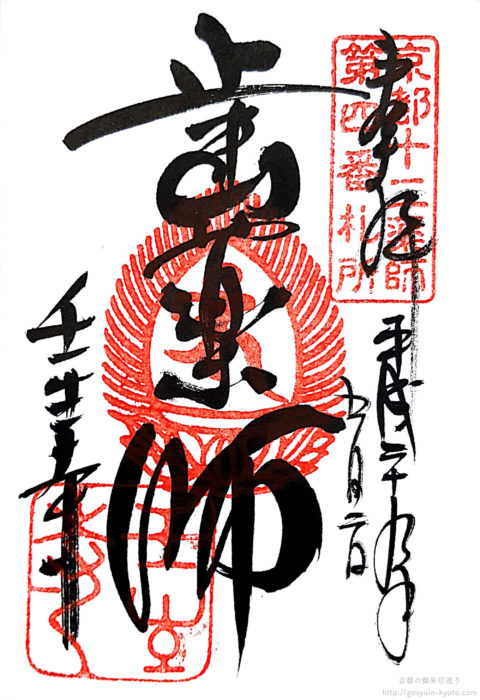 京都十二薬師
第四番札所
奉拝
平成二十九年
五月二日
歯薬師
壬生寺
京都の御朱印巡り
http://gosyuin-kyoto.com